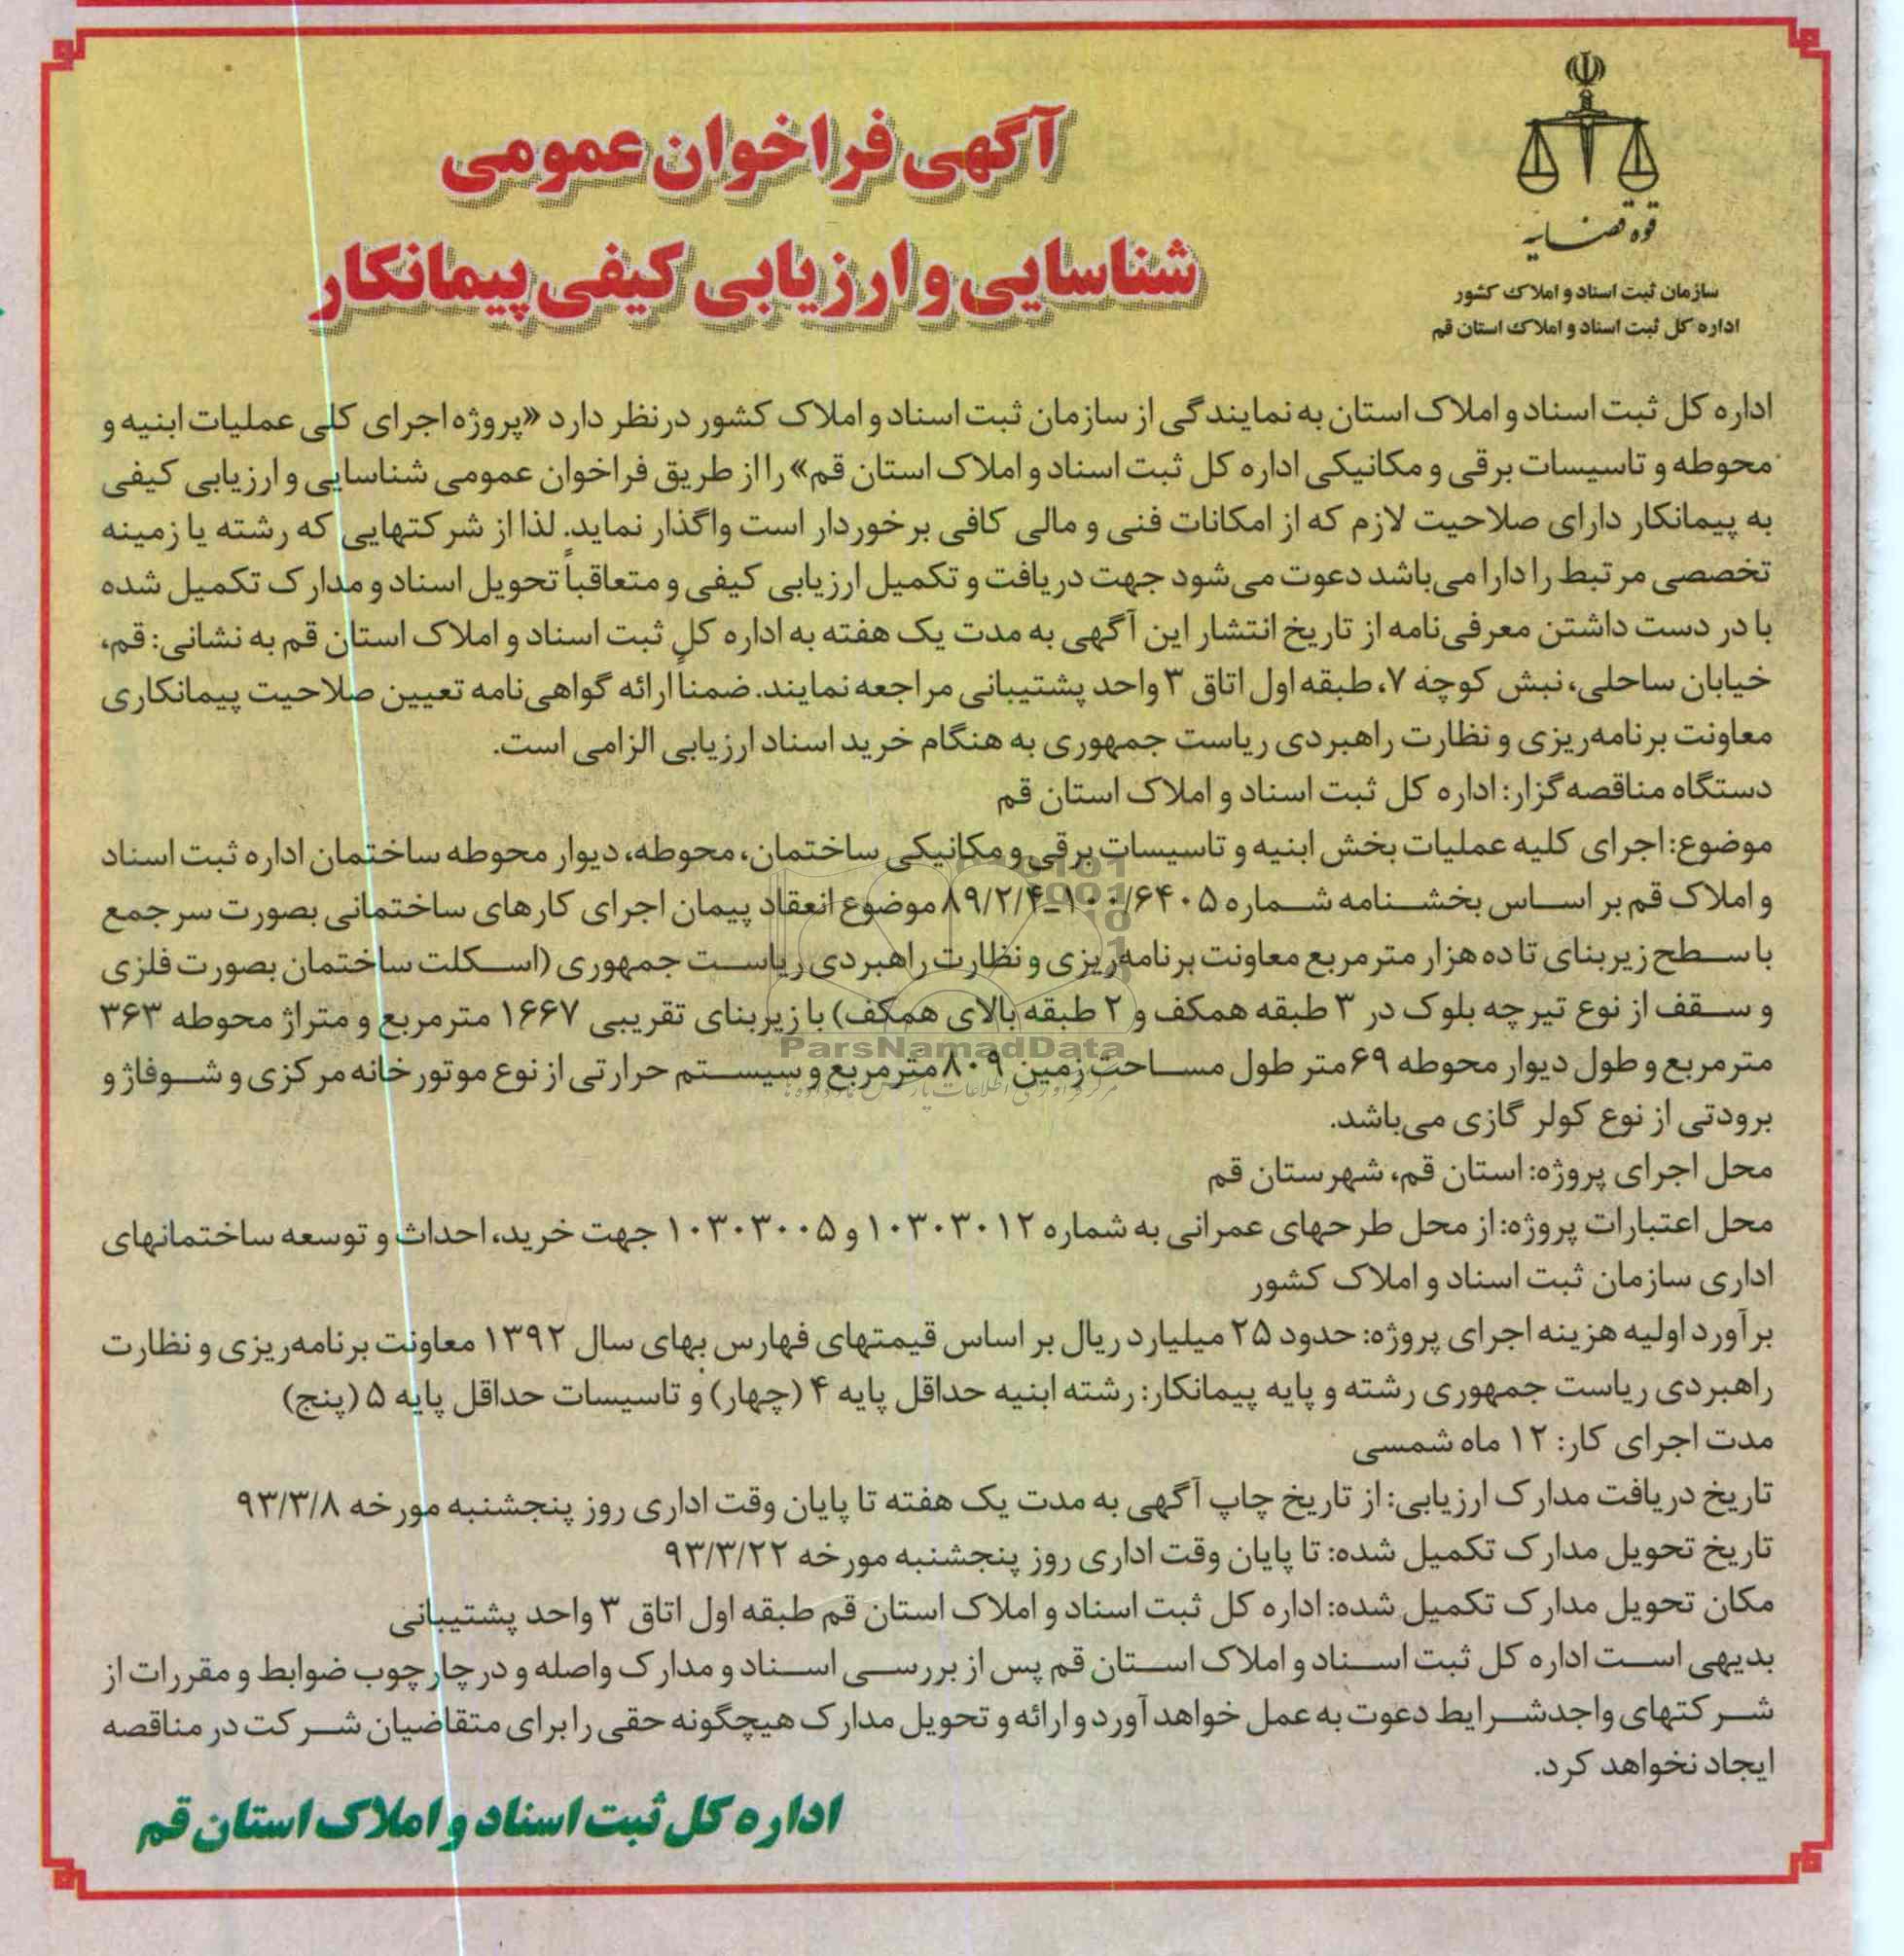 قوه قضاییه
سازمان ثبت اسناد و املاک کشور
اداره کل ثبت اسناد و املاک استان قم
آگهی فراخوان عمومی
شناسایی و ارزیابی کیفی پیمانکار
اداره کل ثبت اسناد و املاک استان به نمایندگی از سازمان ثبت اسناد و املاک کشور در نظر دارد «پروژه اجرای کلی عملیات ابنیه و
محوطه و تاسیسات برقی و مکانیکی اداره کل ثبت اسناد و املاک استان قم» را از طریق فراخوان عمومی شناسایی و ارزیابی کیفی
به پیمانکار دارای صلاحیت لازم که از امکانات فنی و مالی کافی برخوردار است واگذار نماید. لذا از شرکتهایی که رشته یا زمینه
تخصصی مرتبط را دارا می‌باشد دعوت می‌شود جهت دریافت و تکمیل ارزیابی کیفی و متعاقباً تحویل اسناد و مدارک تکمیل شده
با در دست داشتن معرفی‌نامه از تاریخ انتشار این آگهی به مدت یک هفته به اداره کل ثبت اسناد و املاک استان قم به نشانی: قم،
خیابان ساحلی، نبش کوچه ۷، طبقه اول اتاق ۳ واحد پشتیبانی مراجعه نمایند. ضمناً ارائه گواهی‌نامه تعیین صلاحیت پیمانکاری
معاونت برنامه‌ریزی و نظارت راهبردی ریاست جمهوری به هنگام خرید اسناد ارزیابی الزامی است.
دستگاه مناقصه‌گزار: اداره کل ثبت اسناد و املاک استان قم
موضوع: اجرای کلیه عملیات بخش ابنیه و تاسیسات برقی و مکانیکی ساختمان، محوطه، دیوار محوطه ساختمان اداره ثبت اسناد
و املاک قم بر اساس بخشنامه شماره ۱۰۰/۶۴۰۵ـ۸۹/۲/۴ موضوع انعقاد پیمان اجرای کارهای ساختمانی بصورت سرجمع
با سطح زیربنای تا ده هزار مترمربع معاونت برنامه‌ریزی و نظارت راهبردی ریاست جمهوری (اسکلت ساختمان بصورت فلزی
و سقف از نوع تیرچه بلوک در ۳ طبقه همکف و ۲ طبقه بالای همکف) با زیربنای تقریبی ۱۶۶۷ مترمربع و متراژ محوطه ۳۶۳
مترمربع و طول دیوار محوطه ۶۹ متر طول مساحت زمین ۸۰۹ مترمربع و سیستم حرارتی از نوع موتورخانه مرکزی و شوفاژ و
برودتی از نوع کولر گازی می‌باشد.
ParsNamadData
محل اجرای پروژه: استان قم، شهرستان قم
محل اعتبارات پروژه: از محل طرحهای عمرانی به شماره ۱۰۳۰۳۰۱۲ و ۱۰۳۰۳۰۰۵ جهت خرید، احداث و توسعه ساختمانهای
اداری سازمان ثبت اسناد و املاک کشور
برآورد اولیه هزینه اجرای پروژه: حدود ۲۵ میلیارد ریال بر اساس قیمتهای فهارس بهای سال ۱۳۹۲ معاونت برنامه‌ریزی و نظارت
راهبردی ریاست جمهوری رشته و پایه پیمانکار: رشته ابنیه حداقل پایه ۴ (چهار) و تاسیسات حداقل پایه ۵ (پنج)
مدت اجرای کار: ۱۲ ماه شمسی
تاریخ دریافت مدارک ارزیابی: از تاریخ چاپ آگهی به مدت یک هفته تا پایان وقت اداری روز پنجشنبه مورخه ۹۳/۳/۸
تاریخ تحویل مدارک تکمیل شده: تا پایان وقت اداری روز پنجشنبه مورخه ۹۳/۳/۲۲
مکان تحویل مدارک تکمیل شده: اداره کل ثبت اسناد و املاک استان قم طبقه اول اتاق ۳ واحد پشتیبانی
بدیهی است اداره کل ثبت اسناد و املاک استان قم پس از بررسی اسناد و مدارک واصله و در چارچوب ضوابط و مقررات از
شرکتهای واجد شرایط دعوت به عمل خواهد آورد و ارائه و تحویل مدارک هیچگونه حقی را برای متقاضیان شرکت در مناقصه
ایجاد نخواهد کرد.
اداره کل ثبت اسناد و املاک استان قم